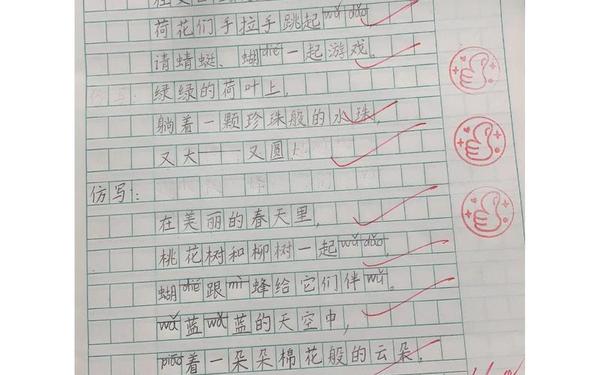 荷花们手拉手跳起wǔ dǎo
请蜻蜓、蝴dié一起游戏。
仿写:绿绿的荷叶上,
躺着一颗珍珠般的水珠,
又大——又圆!
仿写:
在美丽的春天里,
桃花树和柳树一起wǔ dǎo,
蝴dié跟mì蜂给它们伴wǔ。
wǔ蓝wǔ蓝的天空中,
piāo着一朵朵棉花般的云朵,